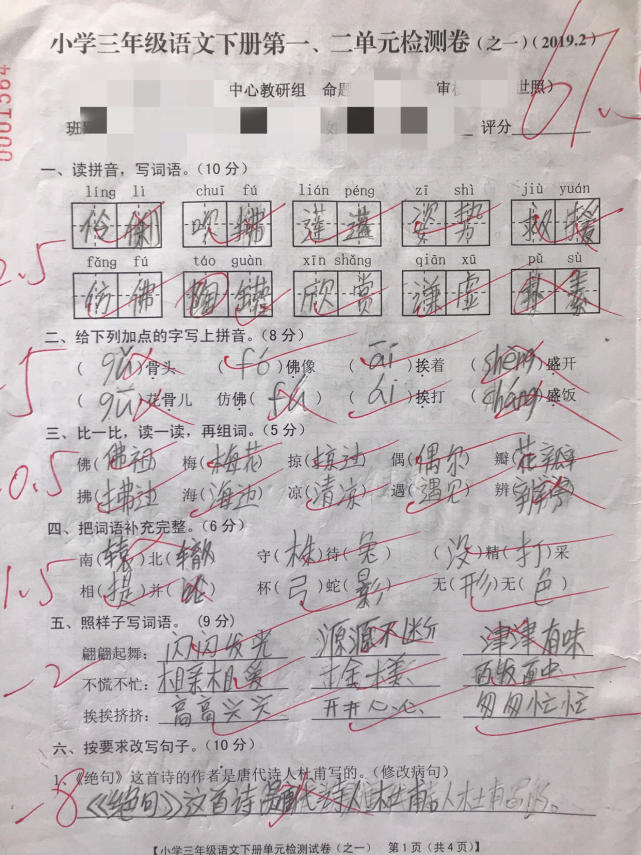 小学三年级语文下册第一、二单元检测卷(之一)(2019.2)
中心教研组 命题 审 世照)
班 评分
0001564
一、读拼音，写词语。(10分)
líng lì chuī fú lián péng zī shì jiù yuán
伶 吹拂 莲蓬 姿势 救援
fǎng fú táo guàn xīn shǎng qiān xū pǔ sù
仿佛 陶罐 欣赏 谦虚 素
2.5
二、给下列加点的字写上拼音。(8分)
(gǔ)骨头 (fó)佛像 (āi)挨着 (shèng)盛开
(gū)花骨儿 仿佛(fú) (ái)挨打 (sháng)盛饭
5
三、比一比，读一读，再组词。(5分)
佛(佛祖) 梅(梅花) 掠(掠过) 偶(偶尔) 瓣(花瓣)
拂(拂过) 海(海边) 凉(清凉) 遇(遇见) 辨( )
0.5
四、把词语补充完整。(6分)
南(辕)北(辙) 守(株)待(兔) (没)精(打)采
相(提)并(论) 杯(弓)蛇(影) 无(形)无(色)
1.5
五、照样子写词语。(9分)
翩翩起舞：闪闪发光 源源不断 津津有味
不慌不忙：相亲相爱 百发百中
挨挨挤挤：高高兴兴 开开心心 匆匆忙忙
-2
六、按要求改写句子。(10分)
1.《绝句》这首诗的作者是唐代诗人杜甫写的。(修改病句)
《绝句》这首诗是 诗人杜甫
-8
【小学三年级语文下册单元检测试卷(之一) 第1页(共4页)】